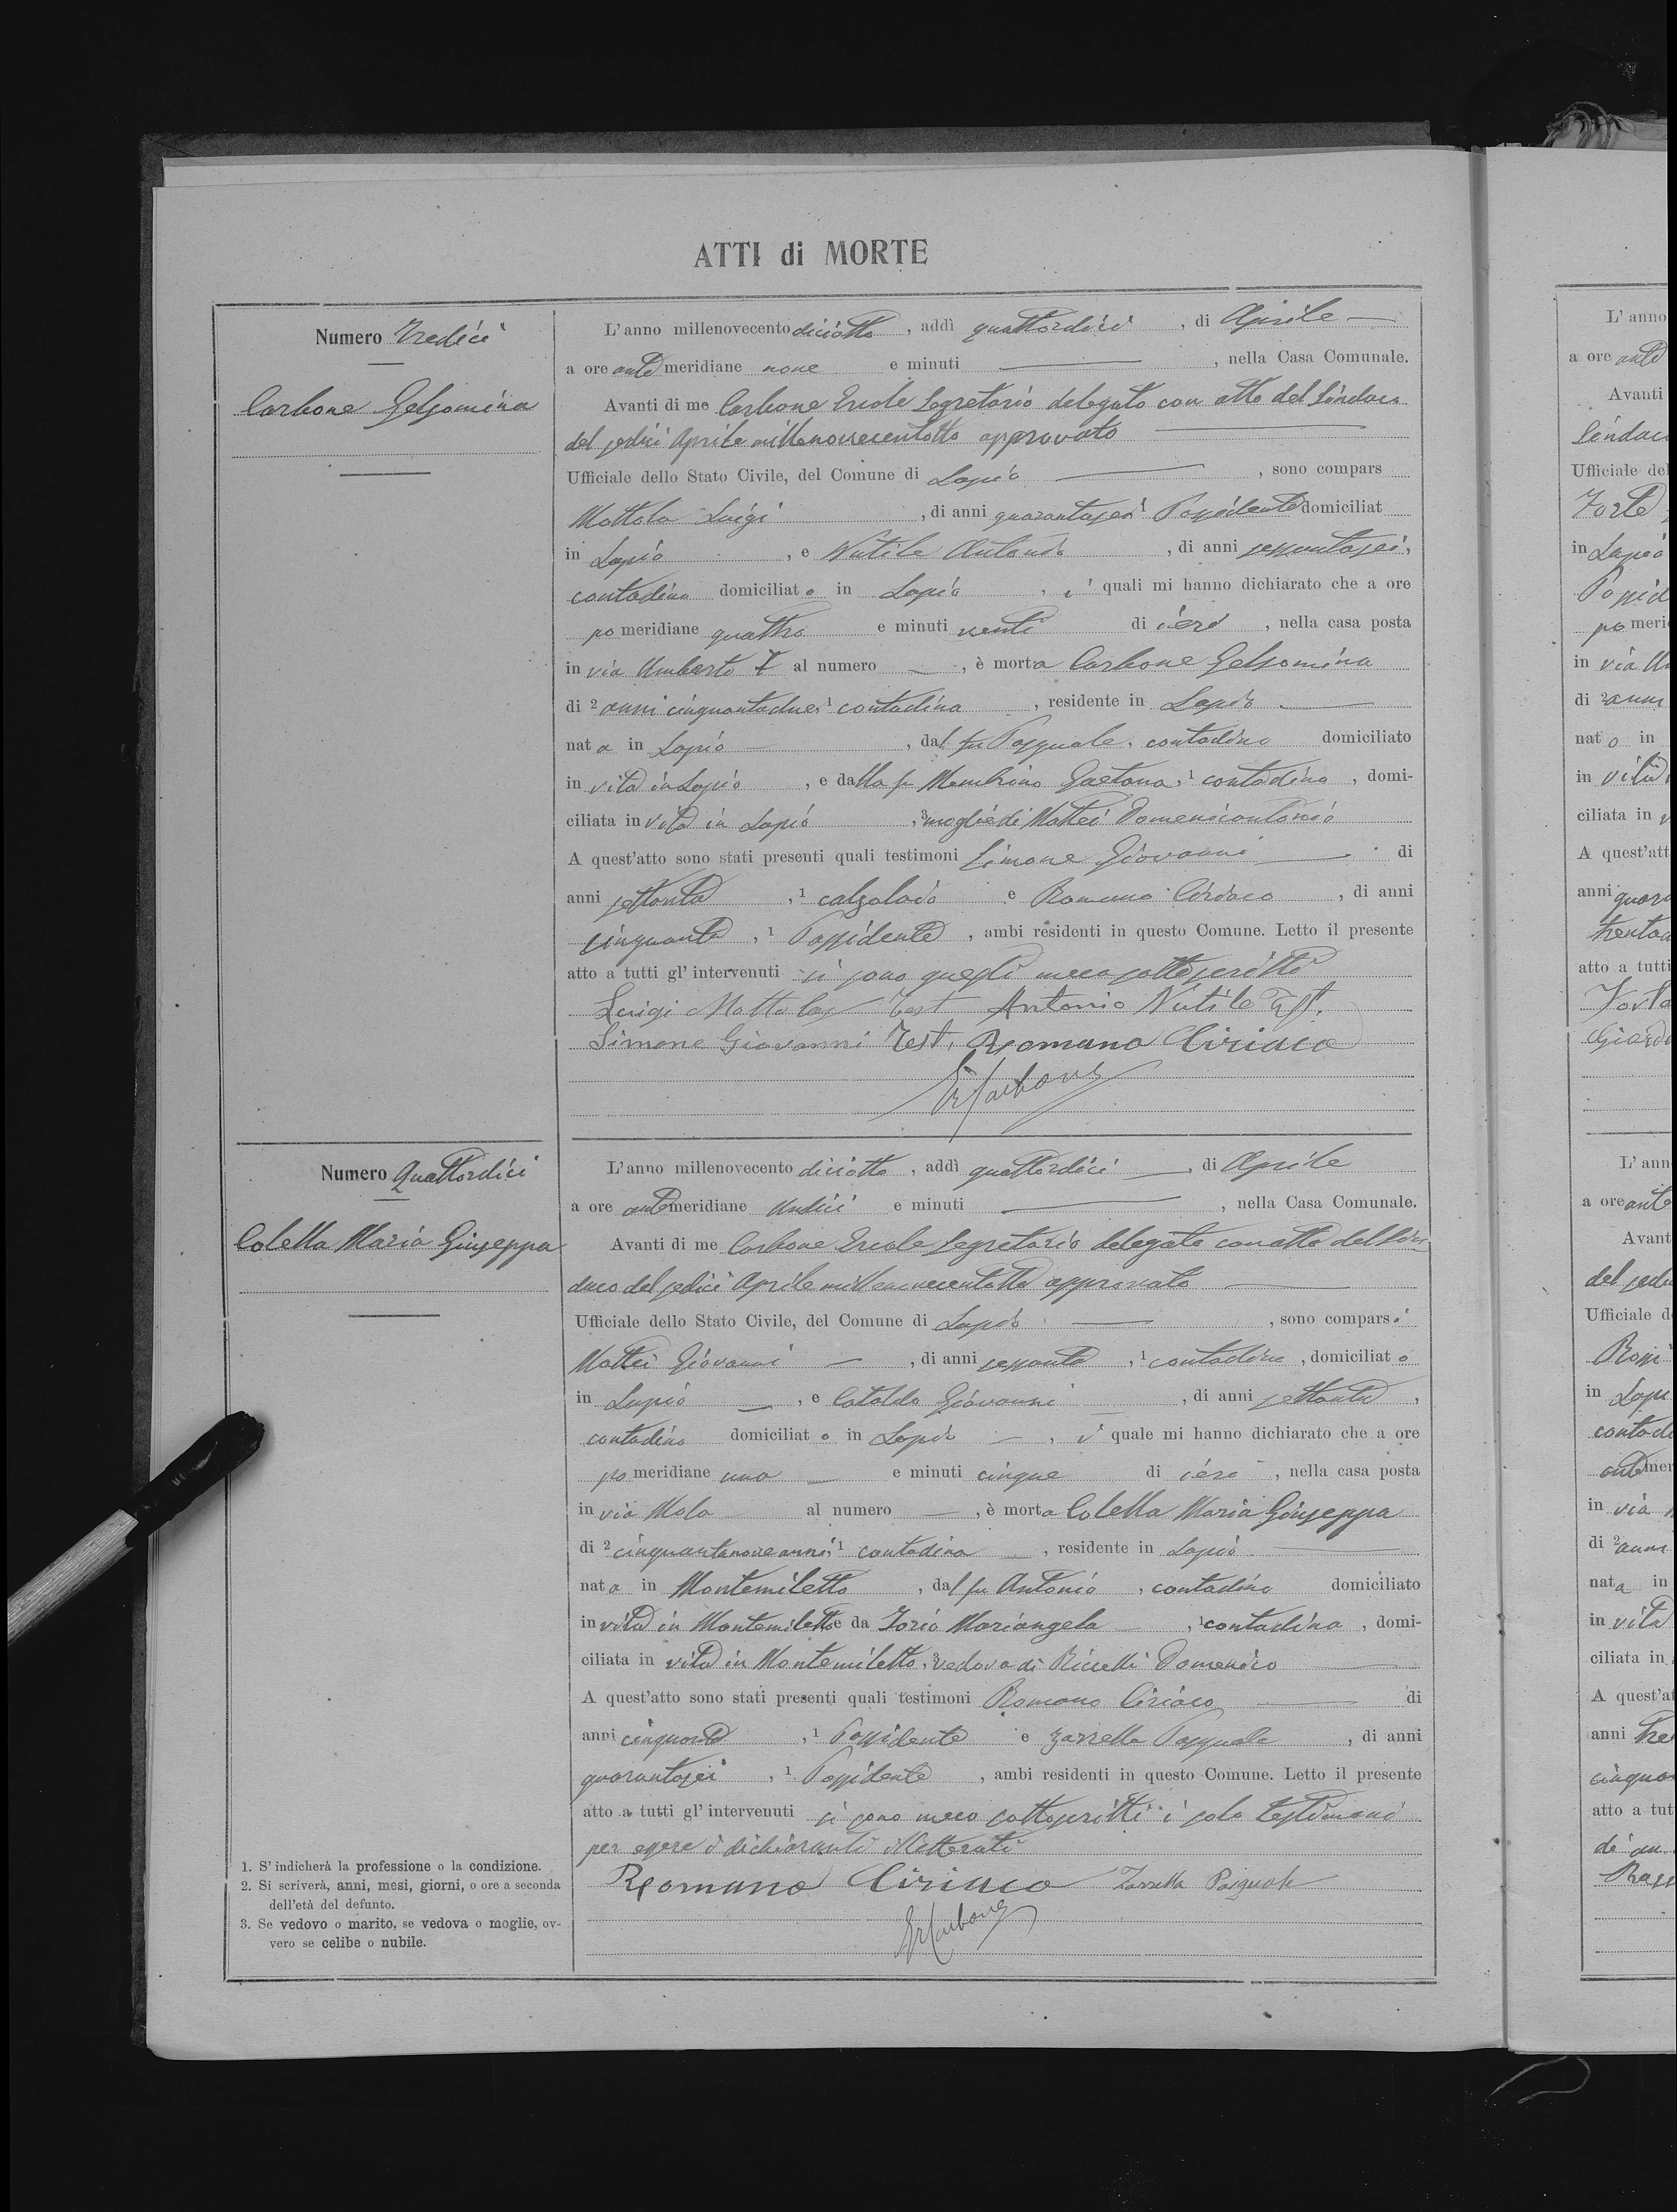 ATTI di MORTE
Numero Tredici
Carbone Gelsomina
L'anno millenovecento diciotto, addì quattordici, di Aprile
a ore ante meridiane nove e minuti, nella Casa Comunale.
Avanti di me Carbone Ercole Segretario delegato con atto del Sindaco
del sedici Aprile millenovecentotto approvato
Ufficiale dello Stato Civile, del Comune di Lapio, sono compars
Mottola Luigi, di anni quarantasei 1 Possidente domiciliat
in Lapio, e Nutile Antonio, di anni sessantasei,
contadino domiciliato in Lapio, i quali mi hanno dichiarato che a ore
po meridiane quattro e minuti venti di ieri, nella casa posta
in via Umberto I al numero, è morta Carbone Gelsomina
di 2 anni cinquantadue, 1 contadina, residente in Lapio
nata in Lapio, dal fu Pasquale, contadino domiciliato
in vita in Lapio, e dalla fu Membrino Gaetana, 1 contadina, domi-
ciliata in vita in Lapio, 3 moglie di Mattei Domenicantonio
A quest'atto sono stati presenti quali testimoni Simone Giovanni di
anni settanta, 1 calzolaio e Romano Ciriaco, di anni
cinquanta, 1 Possidente, ambi residenti in questo Comune. Letto il presente
atto a tutti gl'intervenuti si sono questi meco sottoscritti
Luigi Mottola Test Antonio Nutile Test.
Simone Giovanni Test. Romano Ciriaco
Er Carbone
Numero Quattordici
Colella Maria Giuseppa
L'anno millenovecento diciotto, addì quattordici, di Aprile
a ore ante meridiane undici e minuti, nella Casa Comunale.
Avanti di me Carbone Ercole Segretario delegato con atto del Sin
daco del sedici Aprile millenovecentotto approvato
Ufficiale dello Stato Civile, del Comune di Lapio, sono comparsi
Mattei Giovanni, di anni sessanta, 1 contadino, domiciliato
in Lapio, e Cataldo Giovanni, di anni settanta,
contadino domiciliato in Lapio, i quale mi hanno dichiarato che a ore
po meridiane una e minuti cinque di ieri, nella casa posta
in via Mola al numero, è morta Colella Maria Giuseppa
di 2 cinquantanove anni, 1 contadina, residente in Lapio
nata in Montemiletto, dal fu Antonio, contadino domiciliato
in vita in Montemiletto e da Iorio Mariangela, 1 contadina, domi-
ciliata in vita in Montemiletto, 3 vedova di Riccelli Domenico
A quest'atto sono stati presenti quali testimoni Romano Ciriaco di
anni cinquanta, 1 Possidente e Zarrella Pasquale, di anni
quarantasei, 1 Possidente, ambi residenti in questo Comune. Letto il presente
atto a tutti gl'intervenuti si sono meco sottoscritti i solo testimoni
per essere i dichiaranti illetterati
Romano Ciriaco Zarrella Pasquale
Er Carbone
1. S'indicherà la professione o la condizione.
2. Si scriverà, anni, mesi, giorni, o ore a seconda
dell'età del defunto.
3. Se vedovo o marito, se vedova o moglie, ov-
vero se celibe o nubile.
L'anno
a ore ante
Avanti
Sindaco
Ufficiale del
Forte
in Lapio
po meri
in via
di 2 anni
nato in
in vita
ciliata in
A quest'att
anni
atto a tutti
L'ann
a ore ante
Avant
Ufficiale d
in Lapi
contadi
ante mer
in via
di 2 anni
nata in
in vita
ciliata in
A quest'at
anni tre
cinqua
atto a tut